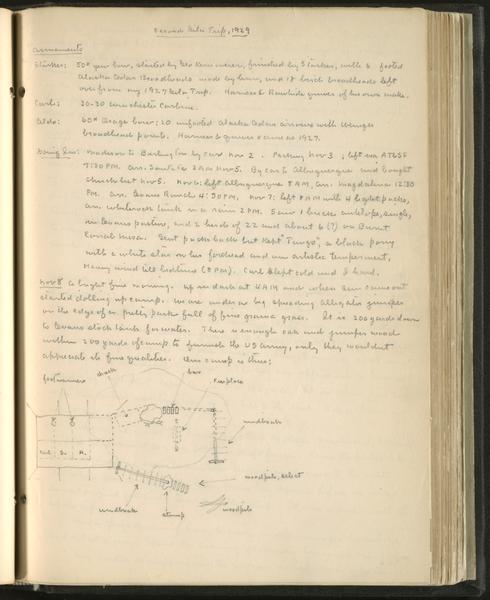 Second Gila Trip, 1929
Armaments
Starker: 50# yew bow, started by Geo Kemmerer, finished by Starker, with 6 footed
Alaska Cedar Broadheads made by him, and 18 birch broadheads left
over from my 1927 Gila Trip. Harness & Rawhide quiver of his own make.
Carl: 30-30 Winchester Carbine.
Aldo: 60# Osage bow; 20 unfooted Alaska Cedar arrows with
broadhead points. Harness & quiver same as 1927.
Going In: Madison to Burlington by car Nov 2. Packing Nov 3; left via AT&SF
7:30 PM. arr. Santa Fe 2 AM Nov 5. By car to Albuquerque and bought
chuck list Nov 5. Nov 6: left Albuquerque 8 AM, arr. Magdalena 12:30
PM. arr. Evans Ranch 4:30 PM. Nov 7: left 8 AM with 4 packs,
arr. whiterock tank in a rain 2 PM. Saw 1 buck antelope, single,
in Evans pasture, and 2 herds of 22 and about 6 (?) on Burnt
Corral Mesa. Sent packs back but kept "Tango", a black pony
with a white star on his forehead and an artistic temperment,
Heavy wind till bedtime (8 PM). Carl slept cold and I hard.
Nov 8 a bright fine morning. Up in dark at 4 AM and when sun came out
started dolling up camp. We are under a big spreading alligator juniper
on the edge of a pretty park full of fine grama grass. It is 200 yards down
to Evans stock tank for water. There is enough oak and juniper wood
within 200 yards of camp to furnish the US Army, only they wouldnt
appreciate its fine qualities. Our camp is thus:
footwarmers
chuck
box
fireplace
windbreak
Carl S. A.
woodpile, select
windbreak
stump
woodpile